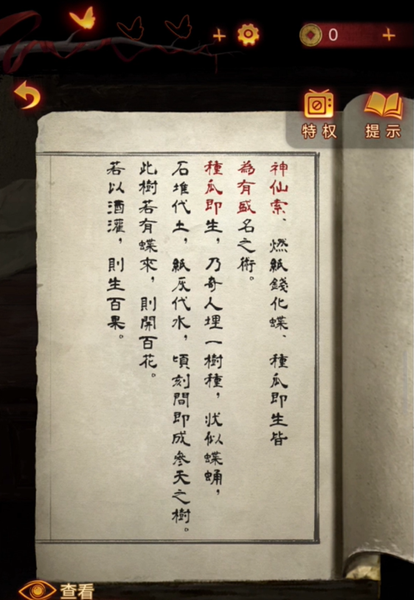 0
特权
提示
神仙索、燃紙錢化蝶、種瓜即生皆
為有盛名之術。
種瓜即生，乃奇人埋一樹種，狀似蝶蛹，
石堆代土，紙灰代水，頃刻間即成參天之樹。
此樹若有蝶來，則開百花。
若以酒灌，則生百果。
查看